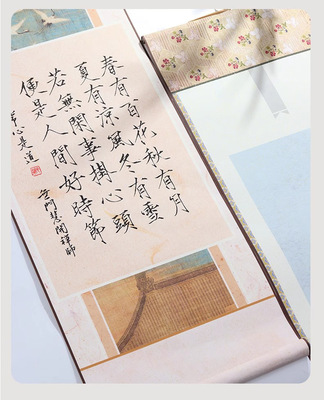 春有百花秋有月
夏有涼風冬有雪
若無閑事掛心頭
便是人間好時節
門慧開禪師
心是道